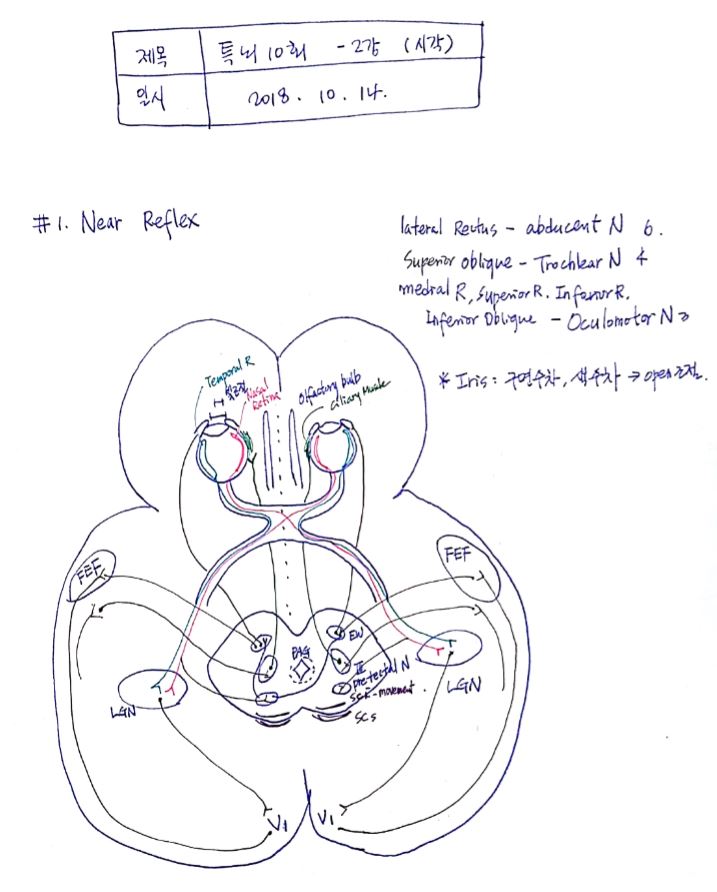 제목 특뇌 10회 - 2강 (시각)
일시 2018. 10. 14.
#1. Near Reflex
lateral Rectus - abducent N 6.
Superior oblique - Trochlear N 4
medial R, Superior R. Inferior R.
Inferior Oblique - Oculomotor N 3
* Iris: 구면수차, 색수차 → open 조절.
Temporal R
Nasal
Retina
Olfactory bulb
Ciliary Muscle
FEF
FEF
EW
PAG
III
pretectal N
SCi - movement.
SCs
LGN
LGN
V1
V1